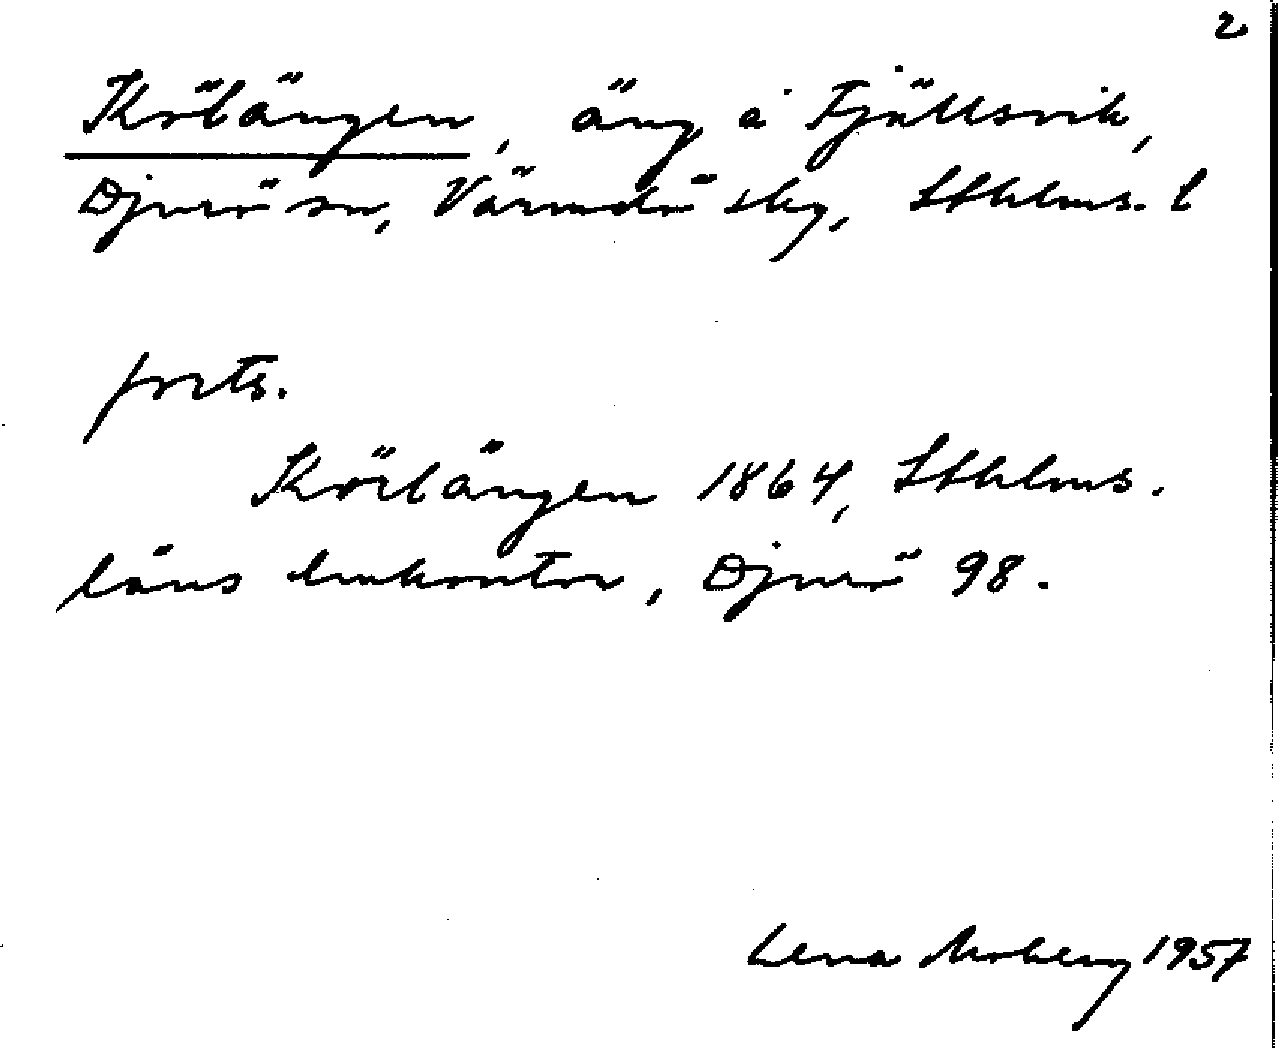 2
Kölängen, äng å Fjällsvik,
Djurö sn, Värmdö skg, Sthlms. l
forts.
Körlängen 1864, Sthlms.
läns lmkontor, Djurö 98.
Lena Moberg 1957